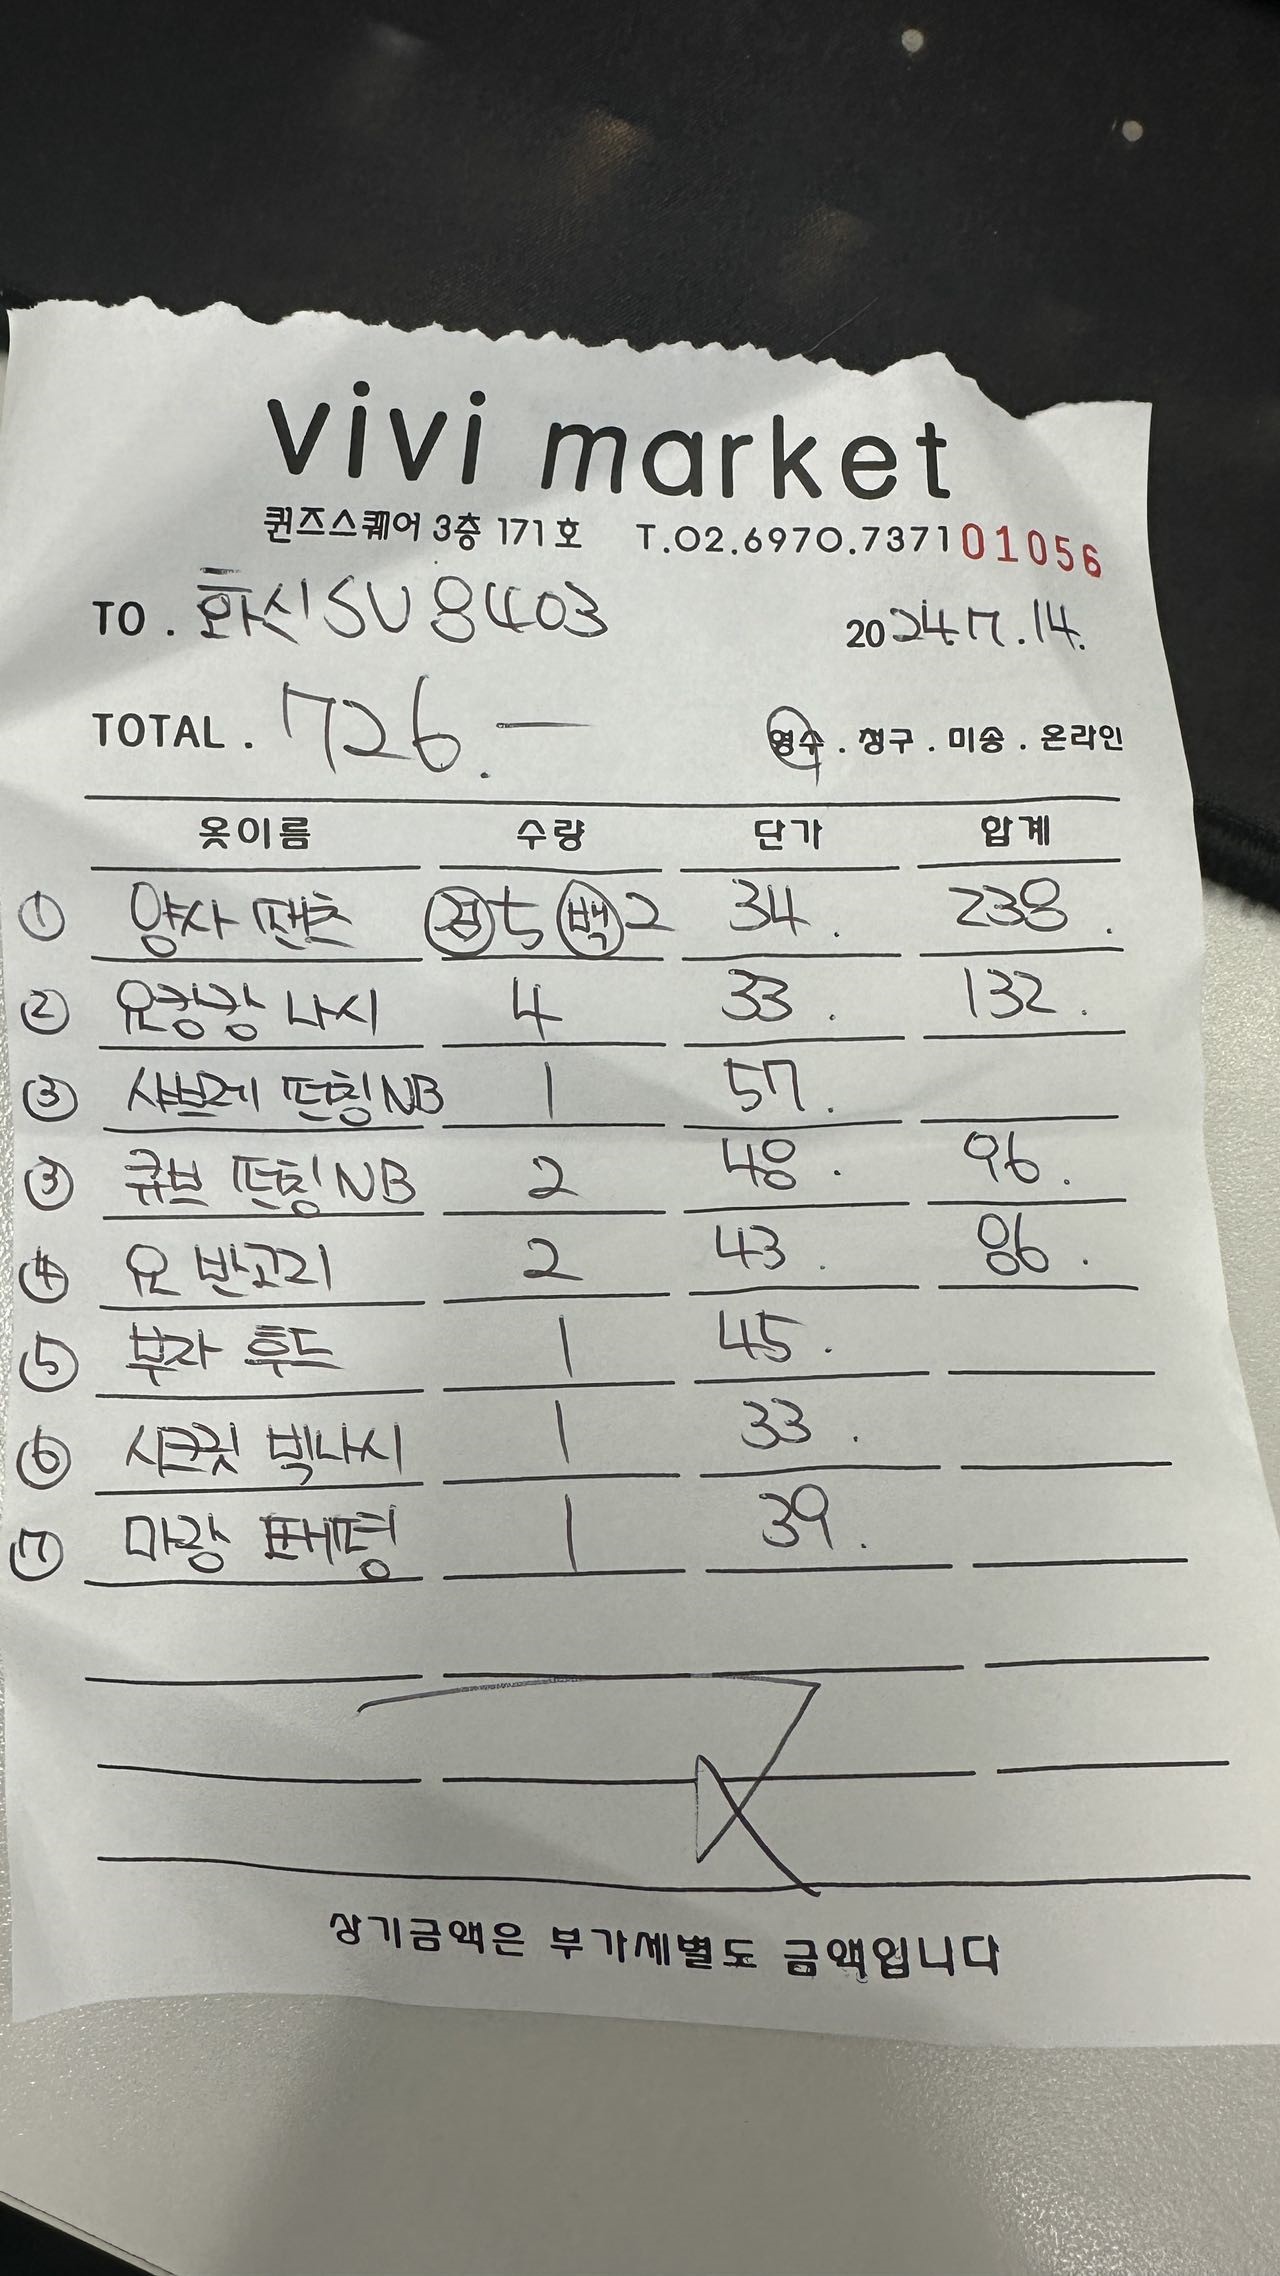 vivi market
퀸즈스퀘어 3층 171호 T.02.6970.7371 01056
TO. 화신SU8403 2024 7.14.
TOTAL. 726.—
영수 . 청구 . 미송 . 온라인
옷이름 수량 단가 합계
① 양사 팬츠 검5 백2 34. 238.
② 요캉캉 나시 4 33. 132.
③ 샤브레 펀칭NB 1 57.
③ 큐브 펀칭NB 2 48. 96.
④ 요 반고리 2 43. 86.
⑤ 부자 후드 1 45.
⑥ 시크릿 빅나시 1 33.
⑦ 마랑 1 39.
상기금액은 부가세별도 금액입니다